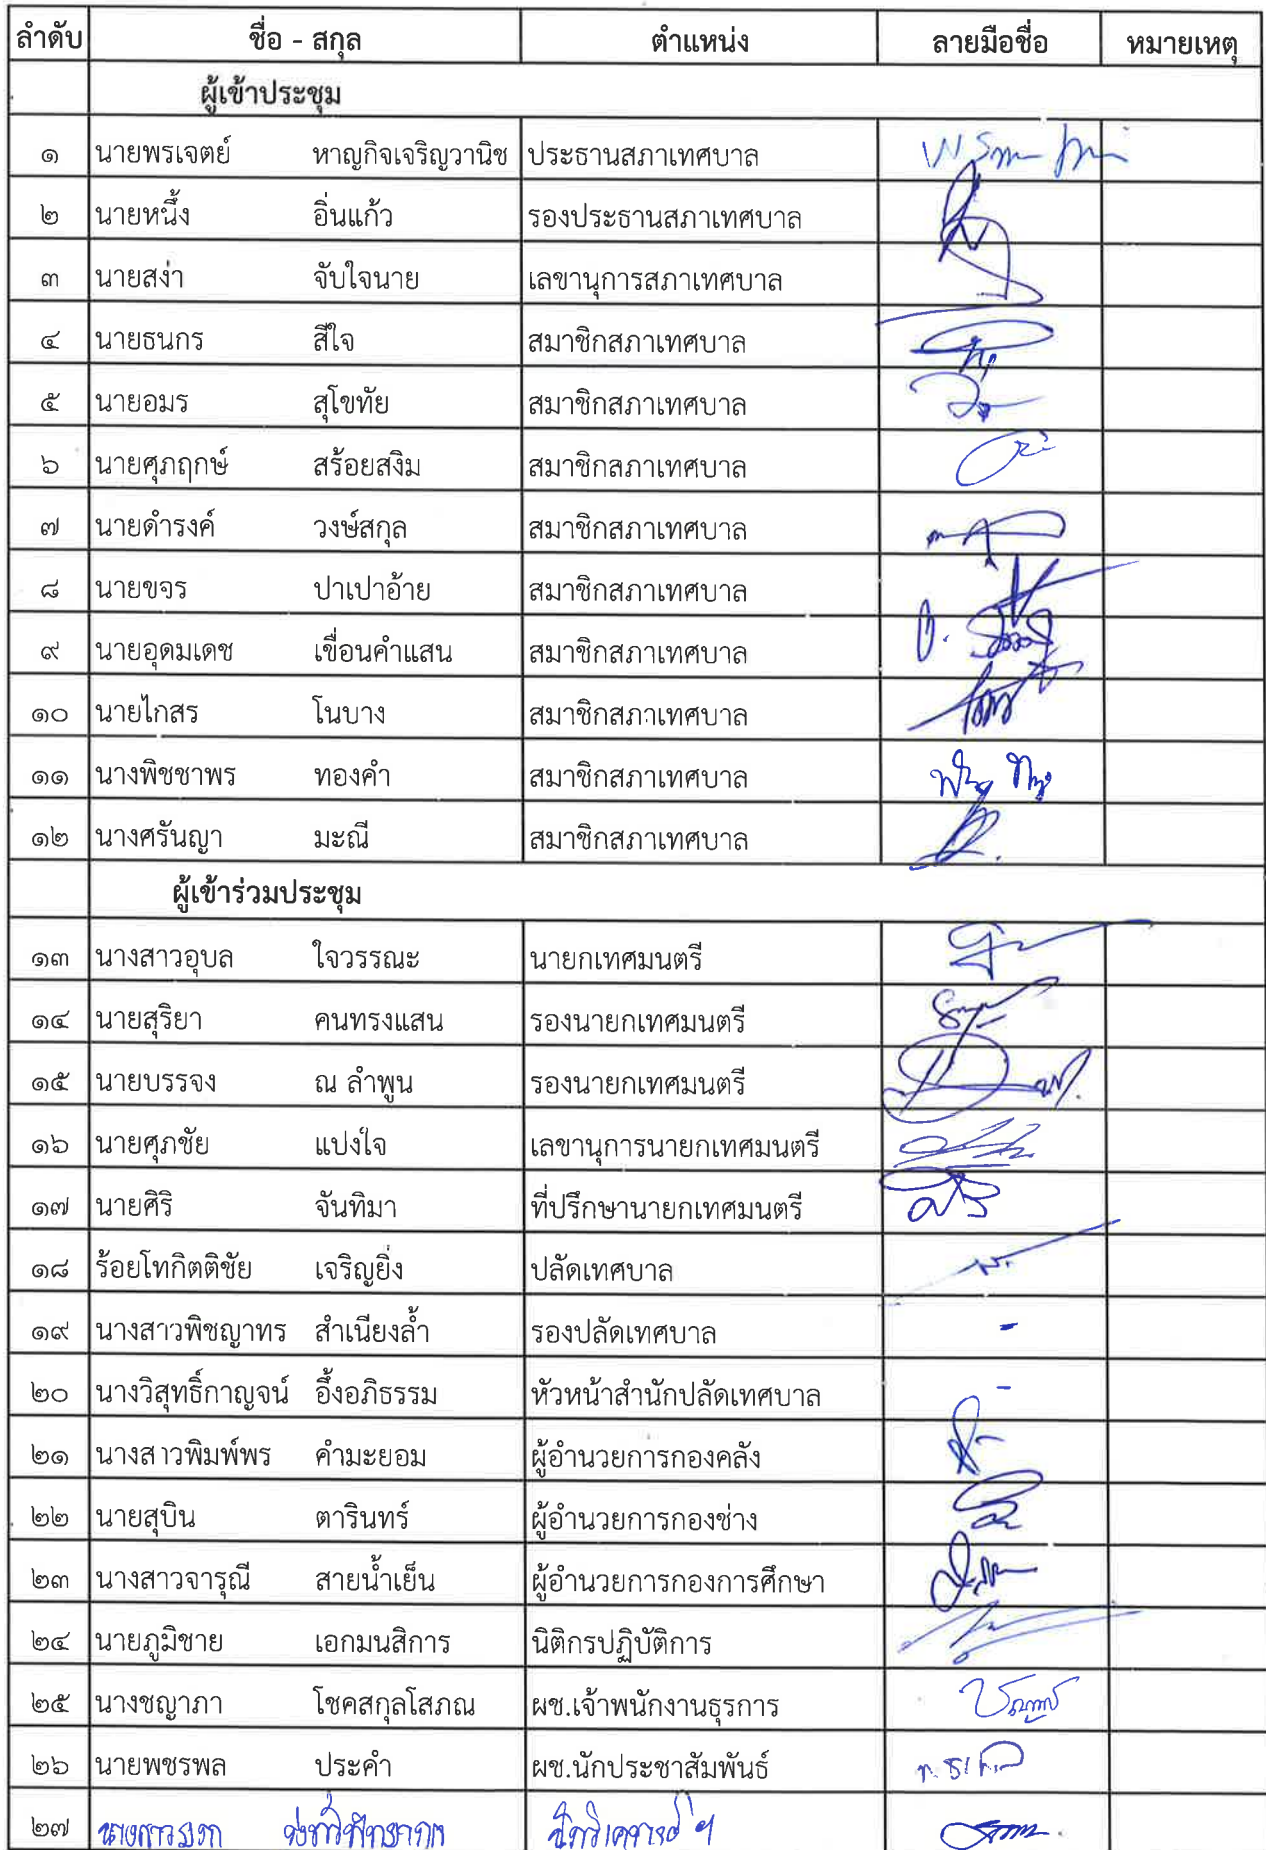 ลำดับ ชื่อ - สกุล ตำแหน่ง ลายมือชื่อ หมายเหตุ
ผู้เข้าประชุม
๑ นายพรเจตย์ หาญกิจเจริญวานิช ประธานสภาเทศบาล
๒ นายหนึ้ง อิ่นแก้ว รองประธานสภาเทศบาล
๓ นายสง่า จับใจนาย เลขานุการสภาเทศบาล
๔ นายธนกร สีใจ สมาชิกสภาเทศบาล
๕ นายอมร สุโขทัย สมาชิกสภาเทศบาล
๖ นายศุภฤกษ์ สร้อยสงิม สมาชิกสภาเทศบาล
๗ นายดำรงค์ วงษ์สกุล สมาชิกสภาเทศบาล
๘ นายขจร ปาเปาอ้าย สมาชิกสภาเทศบาล
๙ นายอุดมเดช เขื่อนคำแสน สมาชิกสภาเทศบาล
๑๐ นายไกสร โนบาง สมาชิกสภาเทศบาล
๑๑ นางพิชชาพร ทองคำ สมาชิกสภาเทศบาล
๑๒ นางศรันญา มะณี สมาชิกสภาเทศบาล
ผู้เข้าร่วมประชุม
๑๓ นางสาวอุบล ใจวรรณะ นายกเทศมนตรี
๑๔ นายสุริยา คนทรงแสน รองนายกเทศมนตรี
๑๕ นายบรรจง ณ ลำพูน รองนายกเทศมนตรี
๑๖ นายศุภชัย แปงใจ เลขานุการนายกเทศมนตรี
๑๗ นายศิริ จันทิมา ที่ปรึกษานายกเทศมนตรี
๑๘ ร้อยโทกิตติชัย เจริญยิ่ง ปลัดเทศบาล
๑๙ นางสาวพิชญาทร สำเนียงล้ำ รองปลัดเทศบาล -
๒๐ นางวิสุทธิ์กาญจน์ อึ้งอภิธรรม หัวหน้าสำนักปลัดเทศบาล -
๒๑ นางสาวพิมพ์พร คำมะยอม ผู้อำนวยการกองคลัง
๒๒ นายสุบิน ตารินทร์ ผู้อำนวยการกองช่าง
๒๓ นางสาวจารุณี สายน้ำเย็น ผู้อำนวยการกองการศึกษา
๒๔ นายภูมิชาย เอกมนสิการ นิติกรปฏิบัติการ
๒๕ นางชญาภา โชคสกุลโสภณ ผช.เจ้าพนักงานธุรการ
๒๖ นายพชรพล ประคำ ผช.นักประชาสัมพันธ์
๒๗